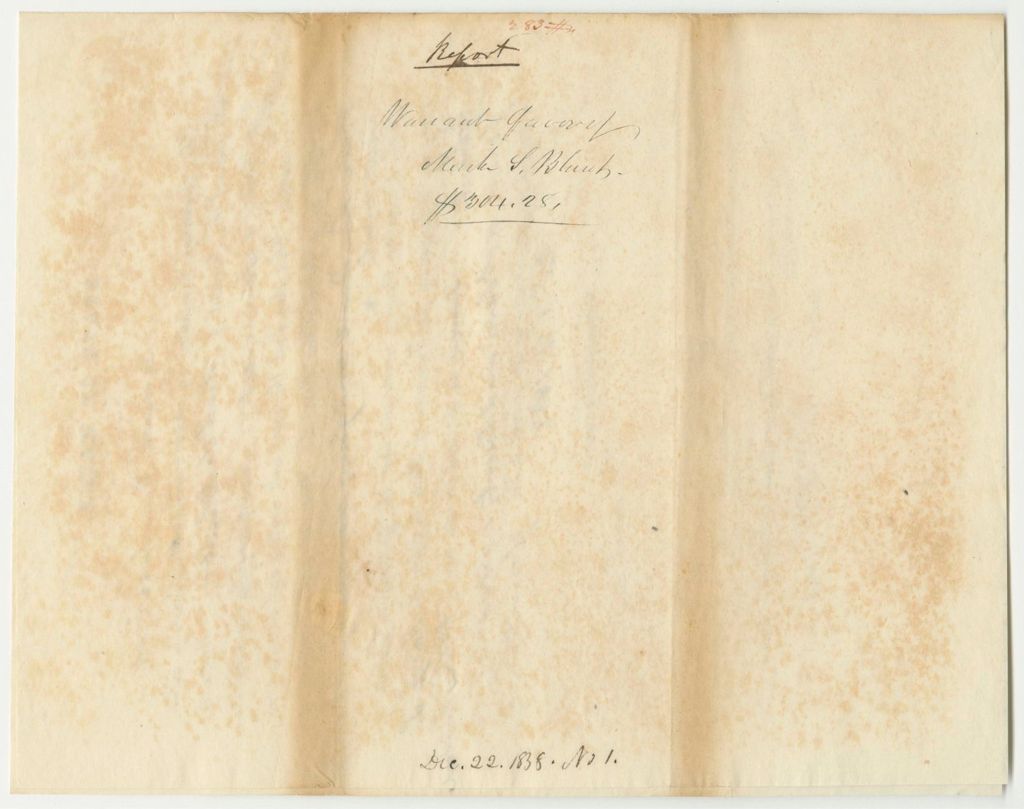 283
Report
Warrant favor of
Mark S. Blunt.
$304.25.
Dec. 22. 1838. No 1.